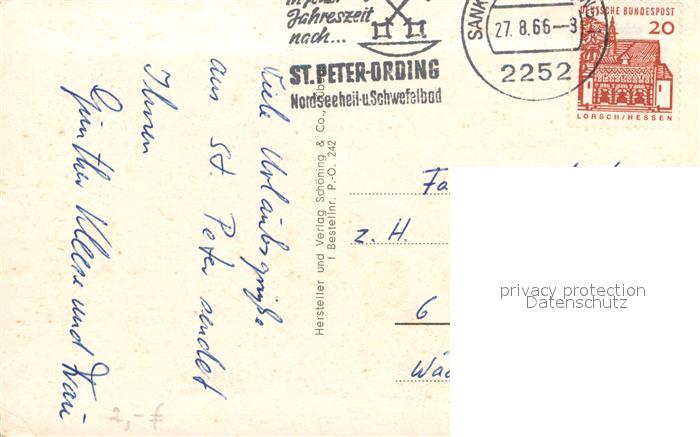 in jeder
Jahreszeit
nach...
ST. PETER-ORDING
Nordseeheil-u.Schwefelbad
SANK
27. 8. 66-9
2252
DEUTSCHE BUNDESPOST
20
LORSCH/HESSEN
Viele Urlaubsgrüße
aus St. Peter sendet
Ihnen
Günther Kleese und Frau
Hersteller und Verlag Schöning & Co., Lüb
f Bestellnr. P.-O. 242
Fa
z. H.
6
Wäc
privacy protection
Datenschutz
2,- €